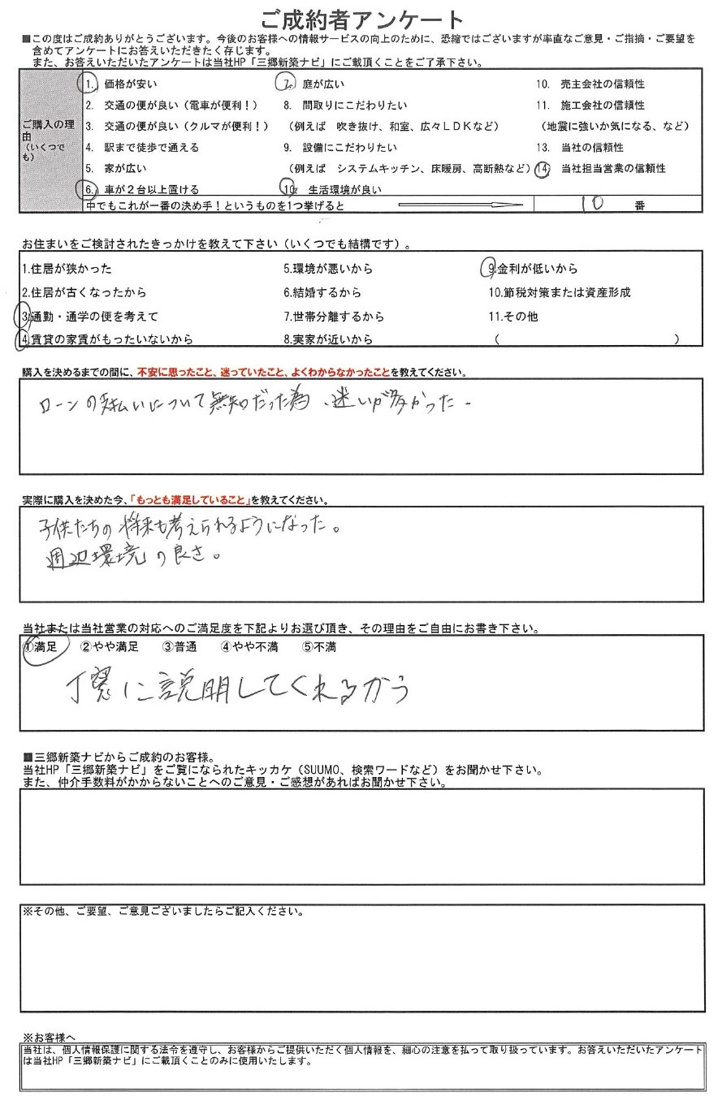 ご成約者アンケート
■この度はご成約ありがとうございます。今後のお客様への情報サービスの向上のために、恐縮ではございますが率直なご意見・ご指摘・ご要望を
含めてアンケートにお答えいただきたく存じます。
また、お答えいただいたアンケートは当社HP「三郷新築ナビ」にご載頂くことをご了承下さい。
ご購入の理由
(いくつでも)
1. 価格が安い
2. 交通の便が良い(電車が便利!)
3. 交通の便が良い(クルマが便利!)
4. 駅まで徒歩で通える
5. 家が広い
6. 車が2台以上置ける
7. 庭が広い
8. 間取りにこだわりたい
(例えば 吹き抜け、和室、広々LDKなど)
9. 設備にこだわりたい
(例えば システムキッチン、床暖房、高断熱など)
10. 生活環境が良い
10. 売主会社の信頼性
11. 施工会社の信頼性
(地震に強いか気になる、など)
13. 当社の信頼性
14 当社担当営業の信頼性
中でもこれが一番の決め手!というものを1つ挙げると 10 番
お住まいをご検討されたきっかけを教えて下さい(いくつでも結構です)。
1.住居が狭かった
2.住居が古くなったから
3.通勤・通学の便を考えて
4.賃貸の家賃がもったいないから
5.環境が悪いから
6.結婚するから
7.世帯分離するから
8.実家が近いから
9.金利が低いから
10.節税対策または資産形成
11.その他
( )
購入を決めるまでの間に、不安に思ったこと、迷っていたこと、よくわからなかったことを教えてください。
ローンの支払いについて無知だった為、迷いが多かった。
実際に購入を決めた今、「もっとも満足していること」を教えてください。
子供たちの将来も考えられるようになった。
周辺環境の良さ。
当社または当社営業の対応へのご満足度を下記よりお選び頂き、その理由をご自由にお書き下さい。
①満足 ②やや満足 ③普通 ④やや不満 ⑤不満
丁寧に説明してくれるから
■三郷新築ナビからご成約のお客様。
当社HP「三郷新築ナビ」をご覧になられたキッカケ(SUUMO、検索ワードなど)をお聞かせ下さい。
また、仲介手数料がかからないことへのご意見・ご感想があればお聞かせ下さい。
※その他、ご要望、ご意見ございましたらご記入ください。
※お客様へ
当社は、個人情報保護に関する法令を遵守し、お客様からご提供いただく個人情報を、細心の注意を払って取り扱っています。お答えいただいたアンケート
は当社HP「三郷新築ナビ」にご載頂くことのみに使用いたします。